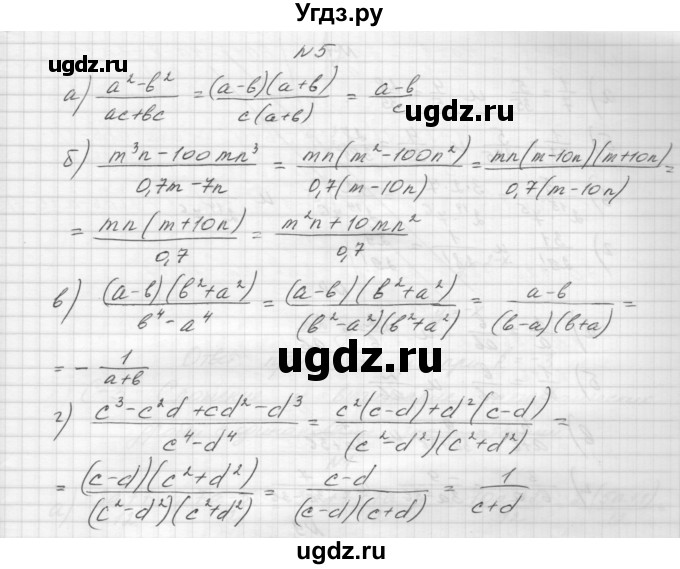 Угдз.ру
N5
а) (a²-b²)/(ac+bc) = ((a-b)(a+b))/(c(a+b)) = (a-b)/c
б) (m³n-100mn³)/(0,7m-7n) = (mn(m²-100n²))/(0,7(m-10n)) = (mn(m-10n)(m+10n))/(0,7(m-10n)) =
= (mn(m+10n))/0,7 = (m²n+10mn²)/0,7
ugdz.ru
ugdz.ru
в) ((a-b)(b²+a²))/(b⁴-a⁴) = ((a-b)(b²+a²))/((b²-a²)(b²+a²)) = (a-b)/((b-a)(b+a)) =
ugdz.ru
= - 1/(a+b)
г) (c³-c²d+cd²-d³)/(c⁴-d⁴) = (c²(c-d)+d²(c-d))/((c²-d²)(c²+d²)) =
= ((c-d)(c²+d²))/((c²-d²)(c²+d²)) = (c-d)/((c-d)(c+d)) = 1/(c+d)
ugdz.ru
ugdz.ru